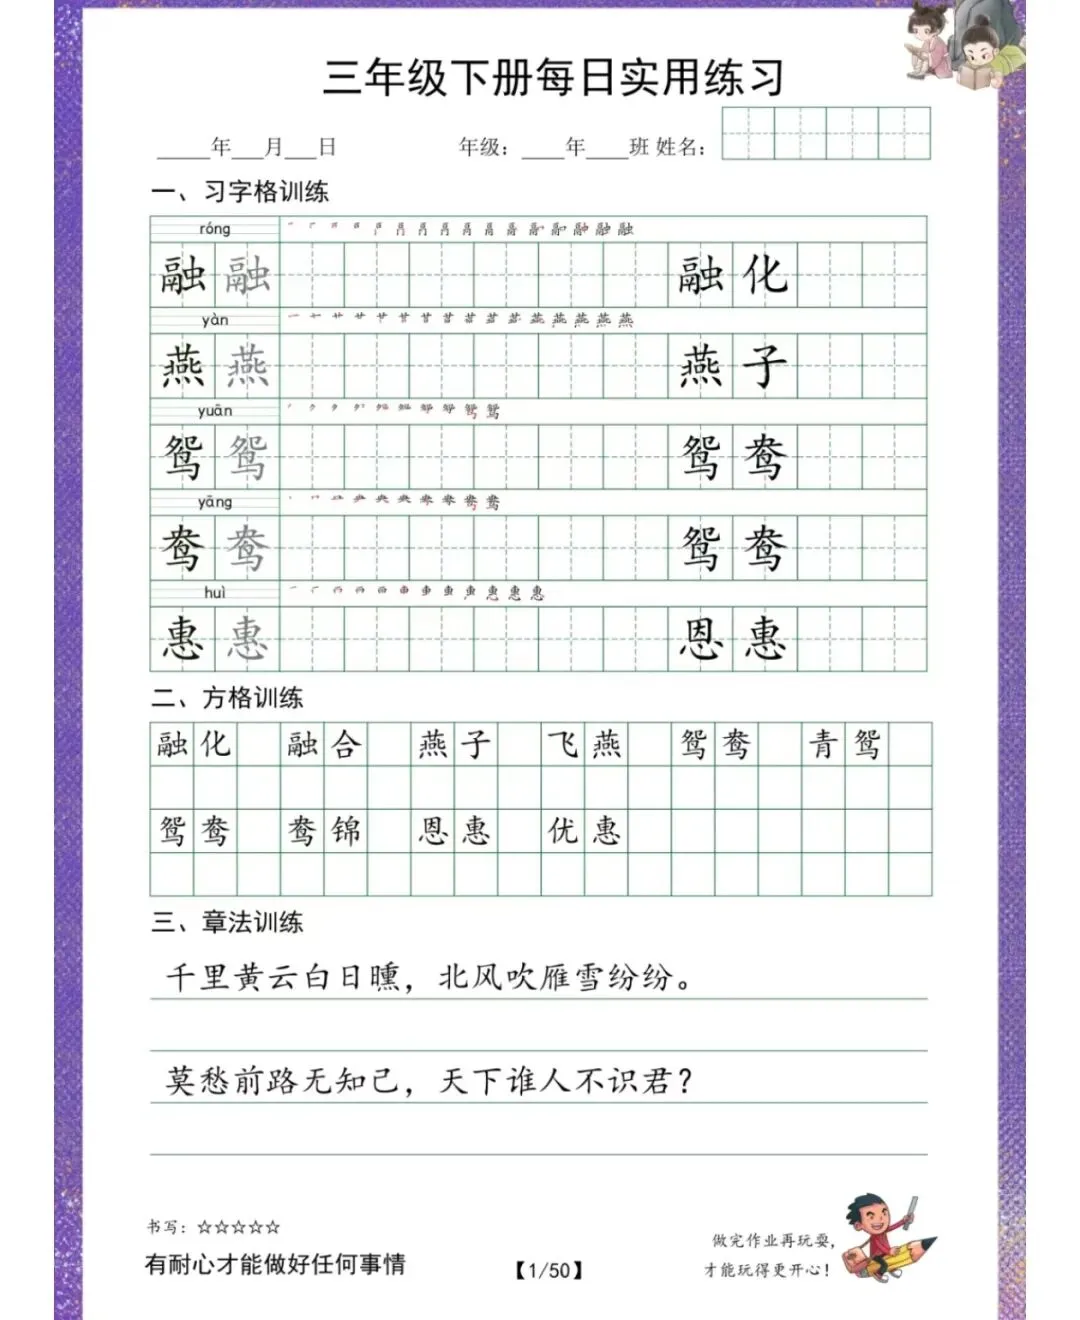 三年级下册每日实用练习
_____年___月___日 年级：____年____班 姓名：
一、习字格训练
róng
融 融 融 化
yàn
燕 燕 燕 子
yuān
鸳 鸳 鸳 鸯
yāng
鸯 鸯 鸳 鸯
huì
惠 惠 恩 惠
二、方格训练
融化 融合 燕子 飞燕 鸳鸯 青鸳
鸳鸯 鸯锦 恩惠 优惠
三、章法训练
千里黄云白日曛，北风吹雁雪纷纷。
莫愁前路无知己，天下谁人不识君？
书写：☆☆☆☆☆
有耐心才能做好任何事情
【1/50】
做完作业再玩耍，
才能玩得更开心！